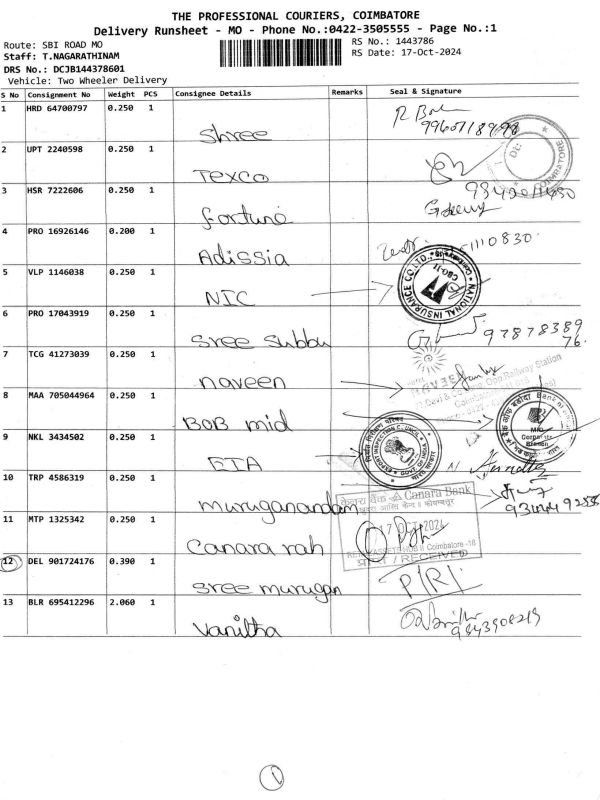 THE PROFESSIONAL COURIERS, COIMBATORE
Delivery Runsheet - MO - Phone No.:0422-3505555 - Page No.:1
Route: SBI ROAD MO
RS No.: 1443786
Staff: T.NAGARATHINAM
RS Date: 17-Oct-2024
DRS No.: DCJB144378601
Vehicle: Two Wheeler Delivery
S No Consignment No Weight PCS Consignee Details Remarks Seal & Signature
1 HRD 64700797 0.250 1
Shree
2 UPT 2240598 0.250 1
COIMBATORE
Texco
3 HSR 7222606 0.250 1
fortune
4 PRO 16926146 0.200 1
Adissia
5 VLP 1146038 0.250 1
NATIONAL INSURANCE CO.LTD.
NIC
6 PRO 17043919 0.250 1
Sree Subbu
97878389
76.
7 TCG 41273039 0.250 1
naveen
Railway Station
8 MAA 705044964 0.250 1
BOB mid
9 NKL 3434502 0.250 1
Corporate
Branch
EXPORT INSPECTION COUNCIL
GOVT. OF INDIA
EIA
10 TRP 4586319 0.250 1
muruganandam
Canara Bank
11 MTP 1325342 0.250 1
17 OCT 2024
Canara rah
RETAIL ASSETS HUB II Coimbatore -18
RECEIVED
12 DEL 901724176 0.390 1
Sree murugan
13 BLR 695412296 2.060 1
Vanitha
9843908219
1